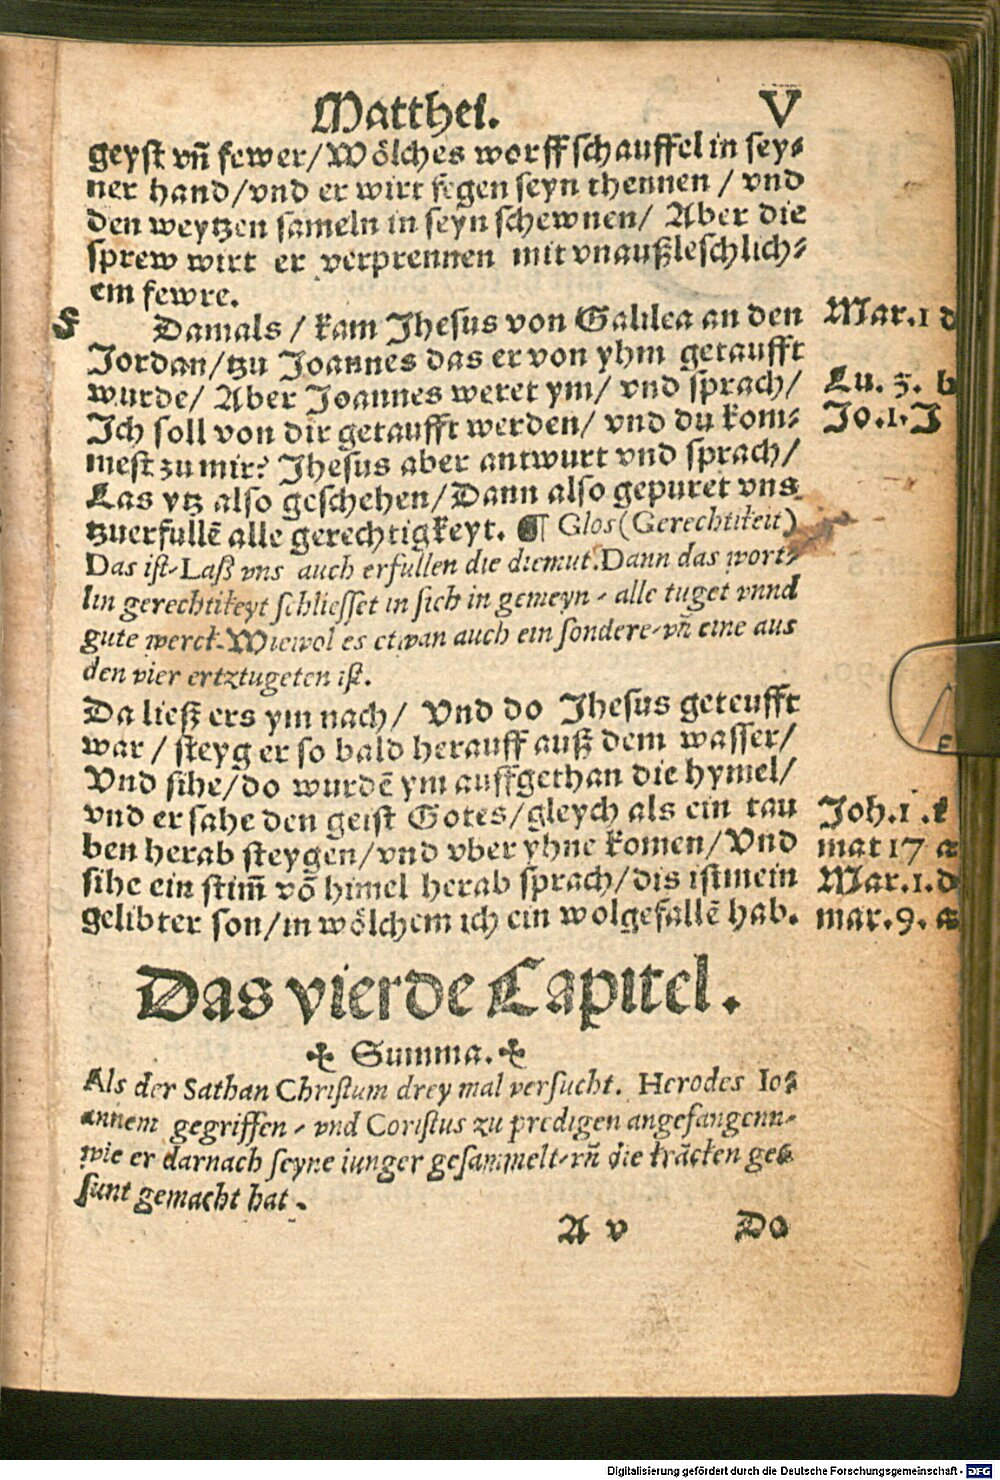 Matthei. V
geyst vñ fewer/Wölches worffschauffel in sey⸗
ner hand/vnd er wirt fegen seyn thennen / vnd
den weytzen sameln in seyn schewnen/ Aber die
sprew wirt er verprennen mit vnaußleschlich⸗
em fewre.
F Damals / kam Jhesus von Galilea an den Mar.1 d
Jordan/tzu Joannes das er von yhm getaufft
wurde/ Aber Joannes weret ym/ vnd sprach/ Lu. 3. b
Ich soll von dir getaufft werden/ vnd du kom⸗ Jo.1.J
mest zu mir? Jhesus aber antwurt vnd sprach/
Las ytz also geschehen/Dann also gepuret vns
tzuerfullē alle gerechtigkeyt. ¶ Glos(Gerechtikeit)
Das ist-Laß vns auch erfullen die diemut.Dann das wort⸗
lin gerechtikeyt schliesset in sich in gemeyn - alle tuget vnnd
gute werck-Wiewol es etwan auch ein sondere-vñ eine aus
den vier ertztugeten ist.
Da ließ ers ym nach/ Vnd do Jhesus geteufft
war / steyg er so bald herauff auß dem wasser/
Vnd sihe/do wurdē ym auffgethan die hymel/
vnd er sahe den geist Gotes/gleych als ein tau Joh.1.k
ben herab steygen/vnd vber yhne komen/Vnd mat 17 a
sihe ein stim̄ vō himel herab sprach/dis ist mein Mar.1.d
gelibter son/in wölchem ich ein wolgefallē hab. mar.9. a
Das vierde Capitel.
✤ Summa.✤
Als der Sathan Christum drey mal versucht. Herodes Io⸗
annem gegriffen - vnd Coristus zu predigen angefangenn-
wie er darnach seyne iunger gesammelt-vñ die kräcken ge⸗
sunt gemacht hat .
A v Do
Digitalisierung gefördert durch die Deutsche Forschungsgemeinschaft - DFG